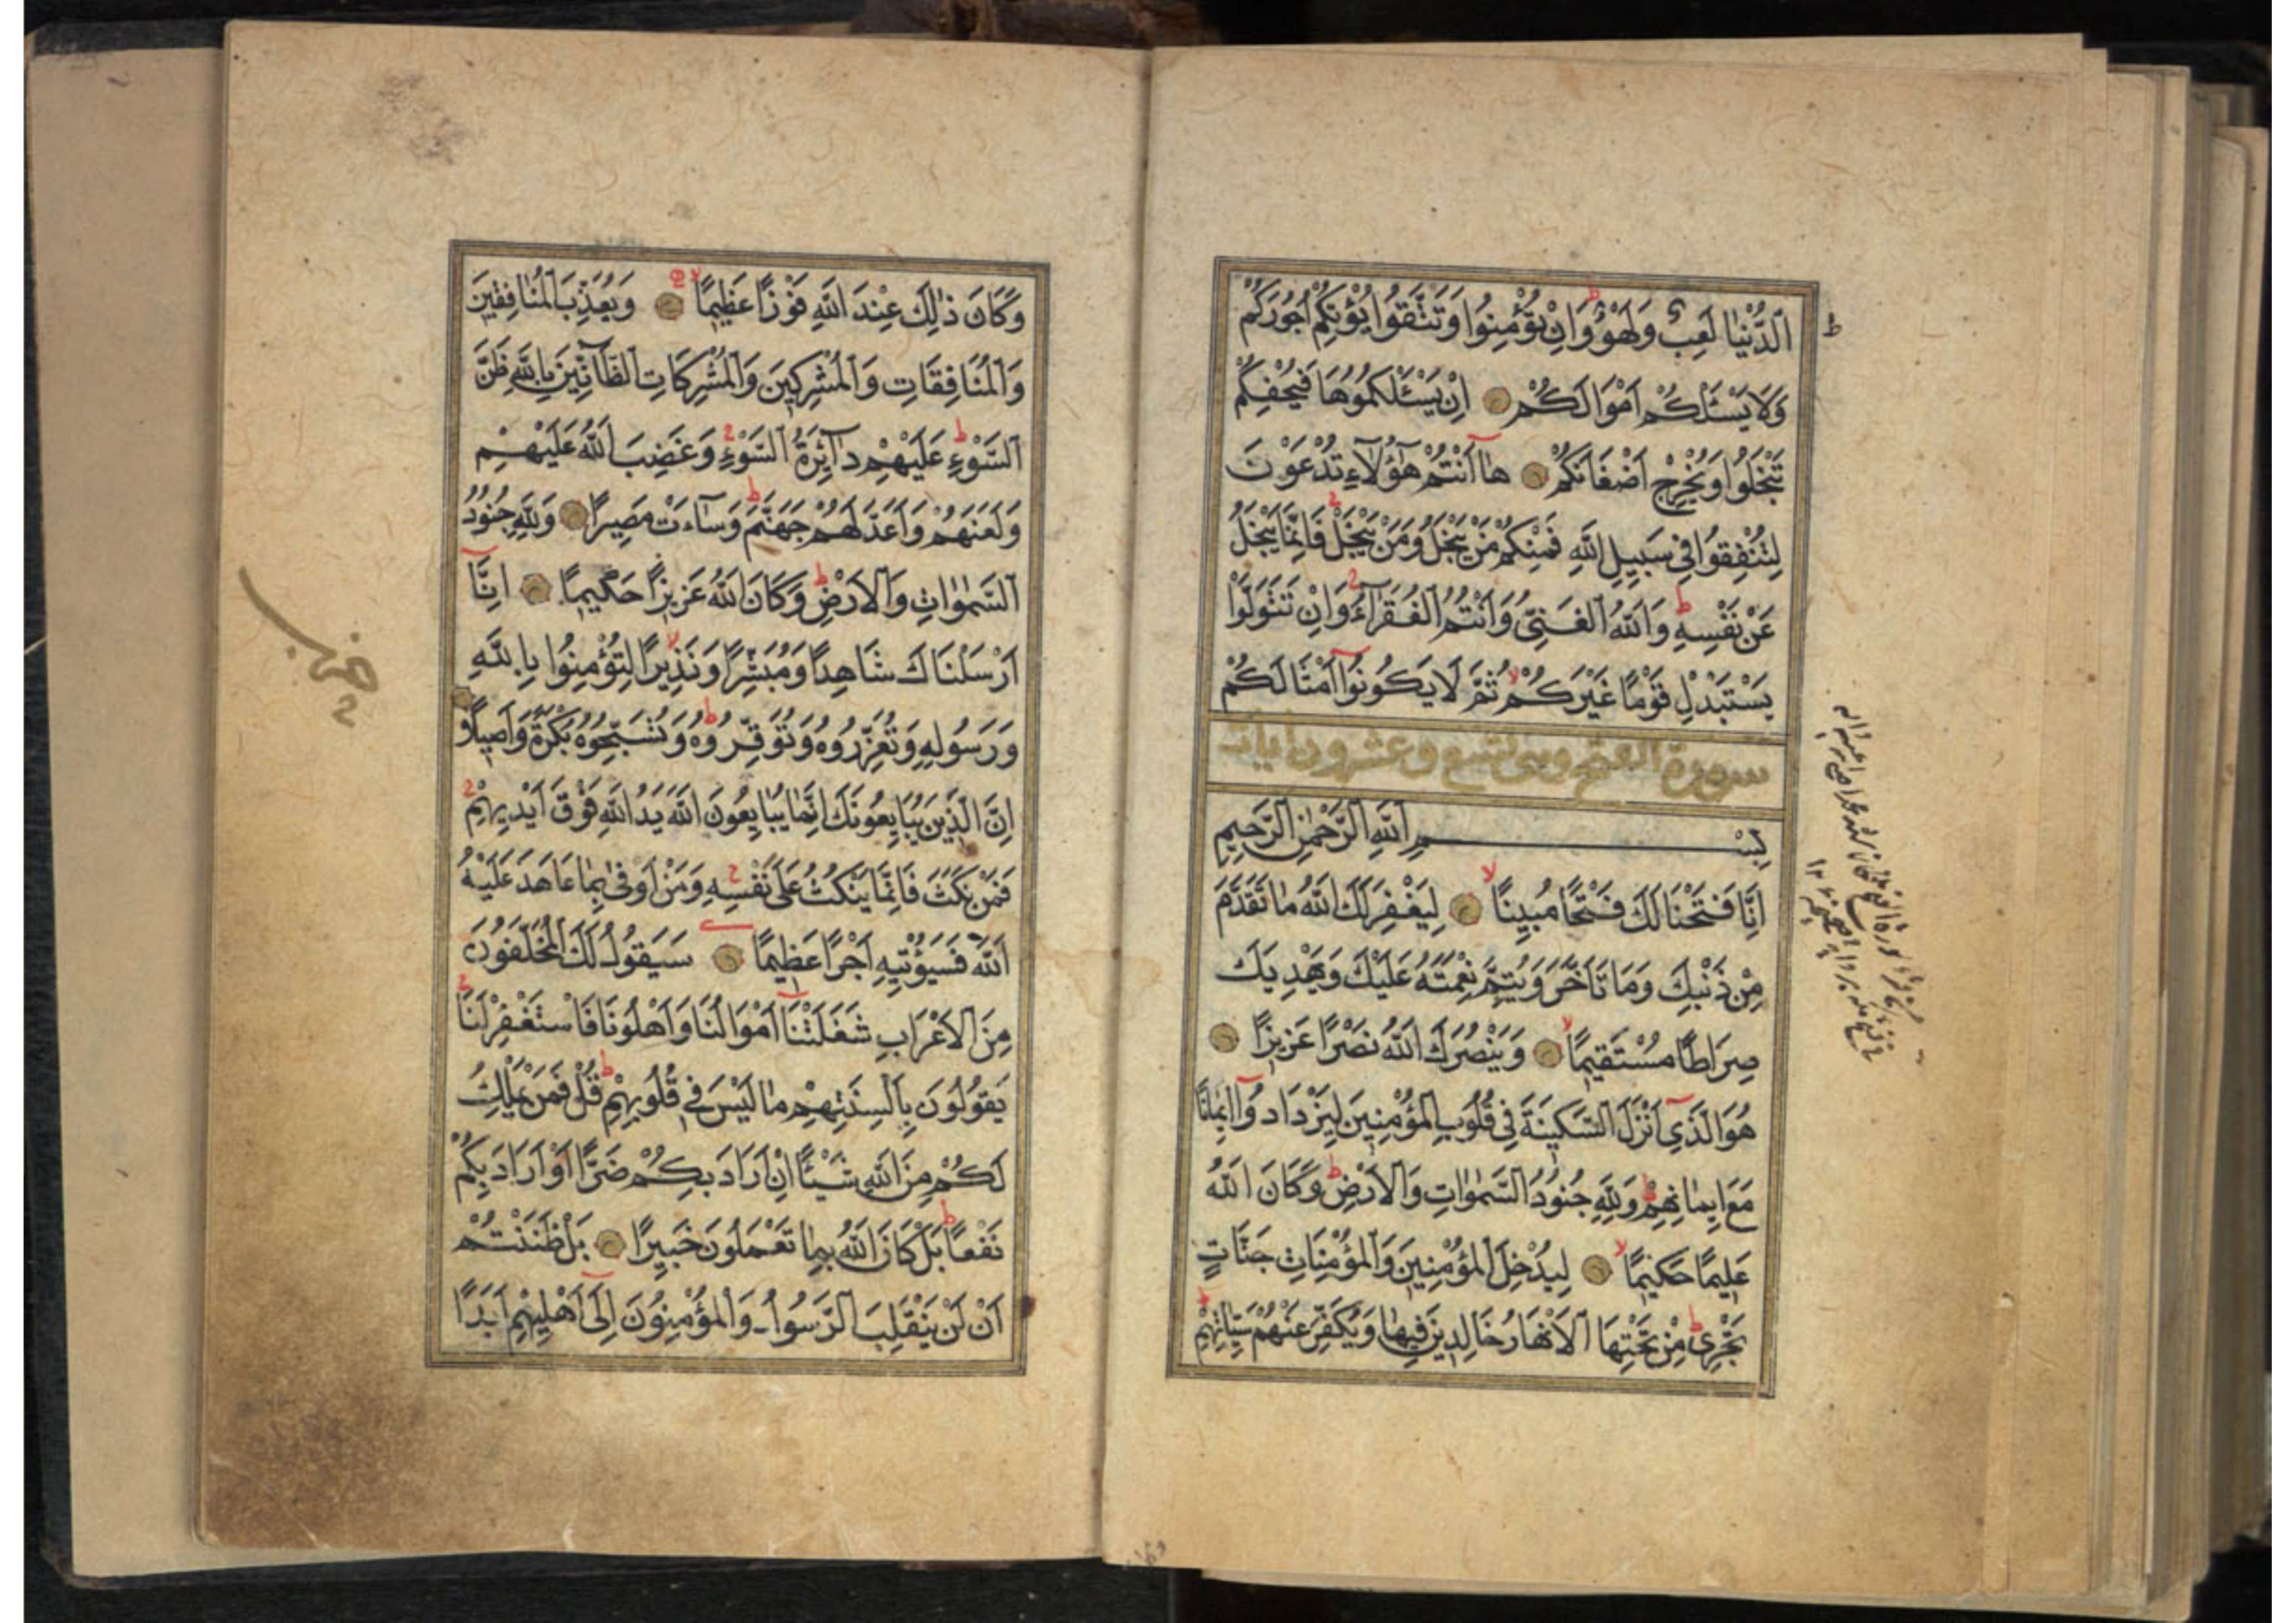 ٱلدُّنْيَا لَعِبٌ وَلَهْوٌ وَاِنْ تُؤْمِنُوا وَتَتَّقُوا يُؤْتِكُمْ اُجُورَكُمْ
وَلَا يَسْـَٔلْكُمْ اَمْوَالَكُمْ اِنْ يَسْـَٔلْكُمُوهَا فَيُحْفِكُمْ
تَبْخَلُوا وَيُخْرِجْ اَضْغَانَكُمْ هَا اَنْتُمْ هٰؤُلَآءِ تُدْعَوْنَ
لِتُنْفِقُوا فِى سَبِيلِ اللّٰهِ فَمِنْكُمْ مَنْ يَبْخَلُ وَمَنْ يَبْخَلْ فَاِنَّمَا يَبْخَلُ
عَنْ نَفْسِهِ وَاللّٰهُ الْغَنِىُّ وَاَنْتُمُ الْفُقَرَآءُ وَاِنْ تَتَوَلَّوْا
يَسْتَبْدِلْ قَوْمًا غَيْرَكُمْ ثُمَّ لَا يَكُونُوا اَمْثَالَكُمْ
سورة الفتح وهى تسع وعشرون ايات
بِسْمِ اللّٰهِ الرَّحْمٰنِ الرَّحِيمِ
اِنَّا فَتَحْنَا لَكَ فَتْحًا مُبِينًا لِيَغْفِرَ لَكَ اللّٰهُ مَا تَقَدَّمَ
مِنْ ذَنْبِكَ وَمَا تَاَخَّرَ وَيُتِمَّ نِعْمَتَهُ عَلَيْكَ وَيَهْدِيَكَ
صِرَاطًا مُسْتَقِيمًا وَيَنْصُرَكَ اللّٰهُ نَصْرًا عَزِيزًا
هُوَ الَّذِى اَنْزَلَ السَّكِينَةَ فِى قُلُوبِ الْمُؤْمِنِينَ لِيَزْدَادُوا اِيمَانًا
مَعَ اِيمَانِهِمْ وَلِلّٰهِ جُنُودُ السَّمٰوَاتِ وَالْاَرْضِ وَكَانَ اللّٰهُ
عَلِيمًا حَكِيمًا لِيُدْخِلَ الْمُؤْمِنِينَ وَالْمُؤْمِنَاتِ جَنَّاتٍ
تَجْرِى مِنْ تَحْتِهَا الْاَنْهَارُ خَالِدِينَ فِيهَا وَيُكَفِّرَ عَنْهُمْ سَيِّاٰتِهِمْ
وَكَانَ ذٰلِكَ عِنْدَ اللّٰهِ فَوْزًا عَظِيمًا وَيُعَذِّبَ الْمُنَافِقِينَ
وَالْمُنَافِقَاتِ وَالْمُشْرِكِينَ وَالْمُشْرِكَاتِ الظَّآنِّينَ بِاللّٰهِ ظَنَّ
السَّوْءِ عَلَيْهِمْ دَآئِرَةُ السَّوْءِ وَغَضِبَ اللّٰهُ عَلَيْهِمْ
وَلَعَنَهُمْ وَاَعَدَّ لَهُمْ جَهَنَّمَ وَسَآءَتْ مَصِيرًا وَلِلّٰهِ جُنُودُ
السَّمٰوَاتِ وَالْاَرْضِ وَكَانَ اللّٰهُ عَزِيزًا حَكِيمًا اِنَّا
اَرْسَلْنَاكَ شَاهِدًا وَمُبَشِّرًا وَنَذِيرًا لِتُؤْمِنُوا بِاللّٰهِ
وَرَسُولِهِ وَتُعَزِّرُوهُ وَتُوَقِّرُوهُ وَتُسَبِّحُوهُ بُكْرَةً وَاَصِيلًا
اِنَّ الَّذِينَ يُبَايِعُونَكَ اِنَّمَا يُبَايِعُونَ اللّٰهَ يَدُ اللّٰهِ فَوْقَ اَيْدِيهِمْ
فَمَنْ نَكَثَ فَاِنَّمَا يَنْكُثُ عَلٰى نَفْسِهِ وَمَنْ اَوْفٰى بِمَا عَاهَدَ عَلَيْهُ
اللّٰهَ فَسَيُؤْتِيهِ اَجْرًا عَظِيمًا سَيَقُولُ لَكَ الْمُخَلَّفُونَ
مِنَ الْاَعْرَابِ شَغَلَتْنَا اَمْوَالُنَا وَاَهْلُونَا فَاسْتَغْفِرْ لَنَا
يَقُولُونَ بِاَلْسِنَتِهِمْ مَا لَيْسَ فِى قُلُوبِهِمْ قُلْ فَمَنْ يَمْلِكُ
لَكُمْ مِنَ اللّٰهِ شَيْـًٔا اِنْ اَرَادَ بِكُمْ ضَرًّا اَوْ اَرَادَ بِكُمْ
نَفْعًا بَلْ كَانَ اللّٰهُ بِمَا تَعْمَلُونَ خَبِيرًا بَلْ ظَنَنْتُمْ
اَنْ لَنْ يَنْقَلِبَ الرَّسُولُ وَالْمُؤْمِنُونَ اِلٰى اَهْلِيهِمْ اَبَدًا